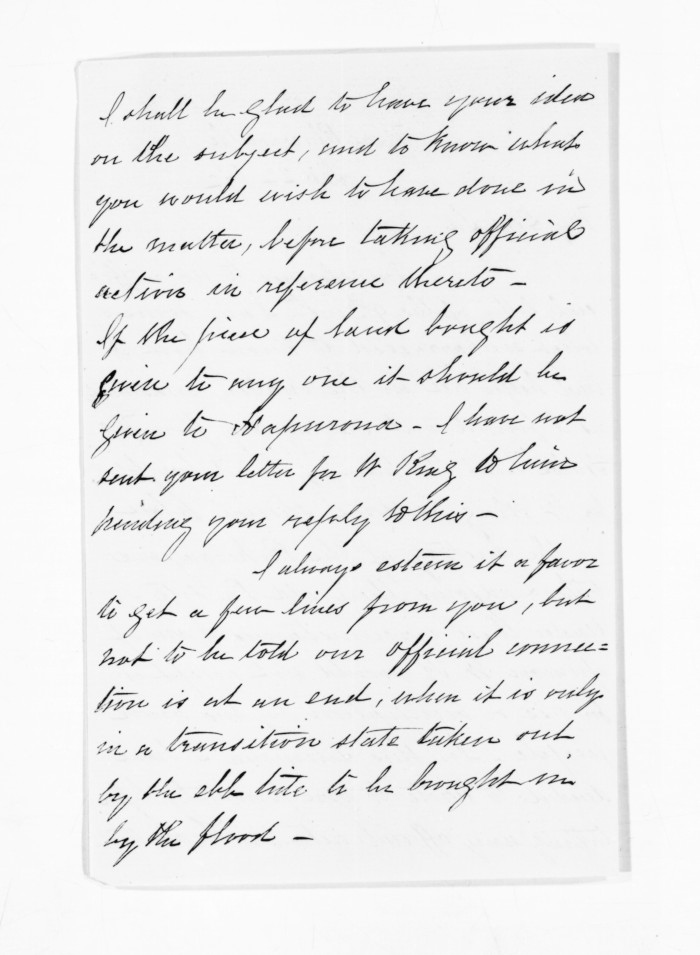 I shall be glad to have your idea
on the subject, and to know what
you would wish to have done in
the matter, before taking official
action in reference thereto -
If the piece of land bought is
given to any one it should be
given to Hapurona - I have not
sent your letter for W King to him
pending your reply to this -
I always esteem it a favor
to get a few lines from you, but
not to be told our official connec=
tion is at an end, when it is only
in a transition state taken out
by the ebb tide to be brought in
by the flood -